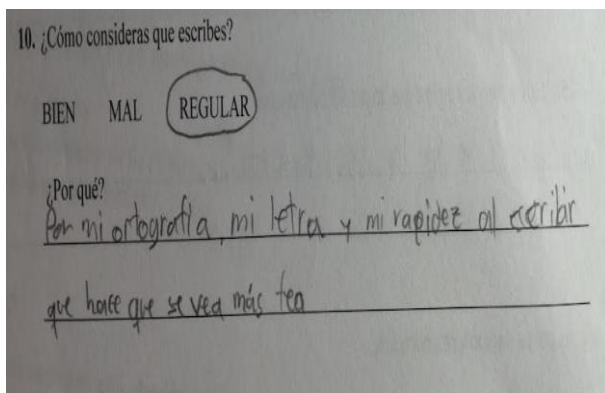 10. ¿Cómo consideras que escribes?
BIEN MAL REGULAR
¿Por qué?
Por mi ortografía, mi letra y mi rapidez al escribir
que hace que se vea más fea